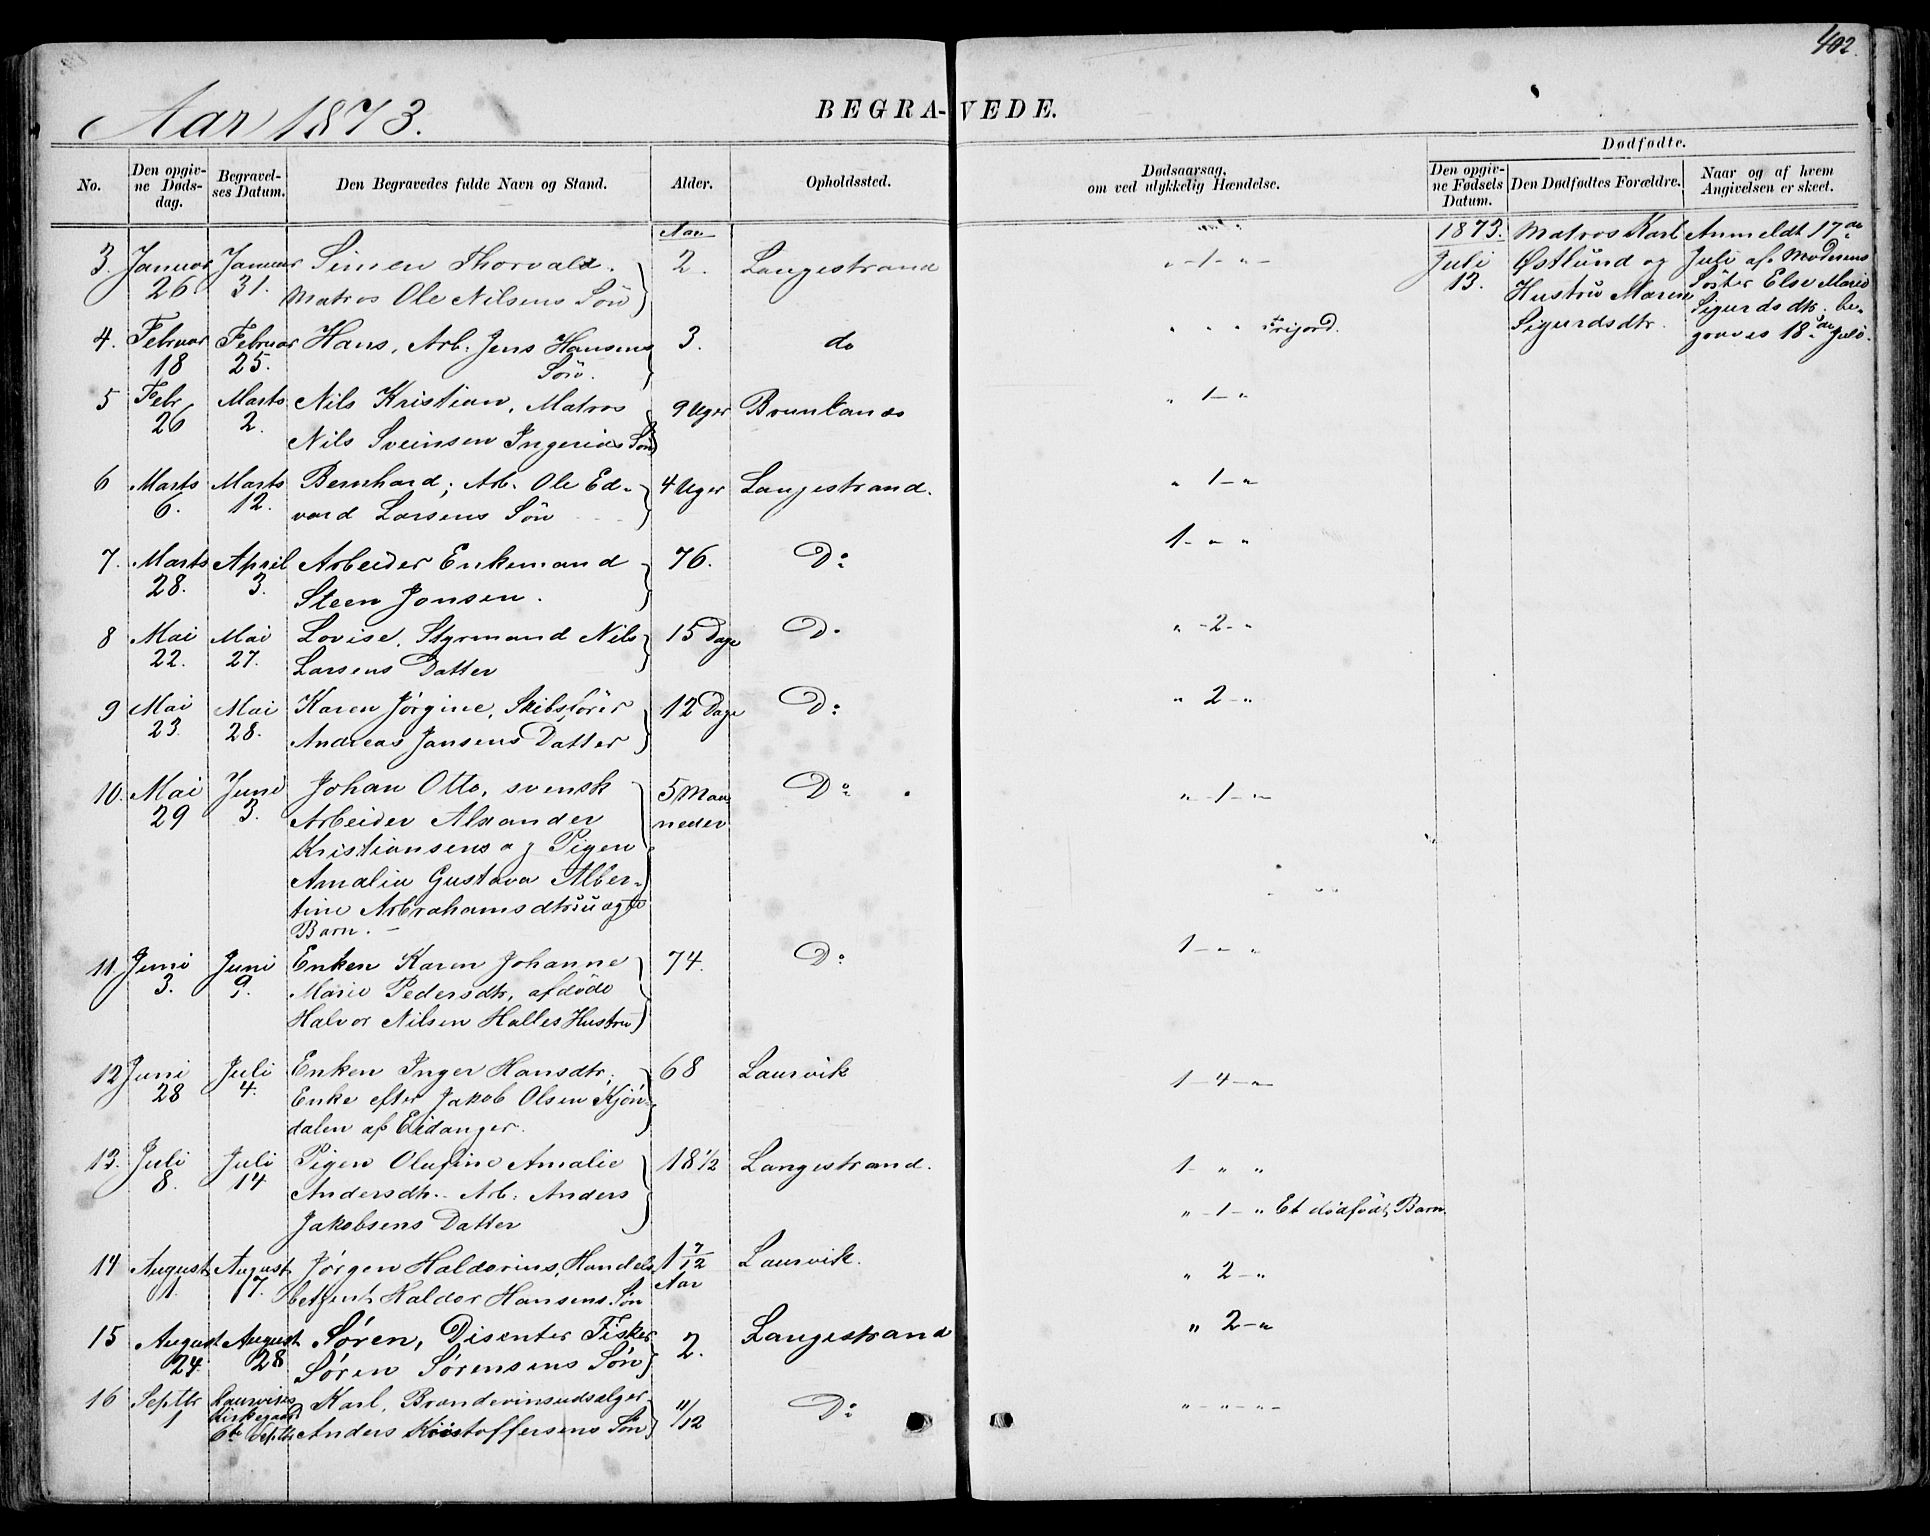 402.
Aar 1873.
BEGRA-VEDE.
No.
Den opgiv-
ne Døds-
dag.
Begravel-
ses Datum.
Den Begravedes fulde Navn og Stand.
Alder.
Opholdssted.
Dødsaarsag,
om ved ulykkelig Hændelse.
Dødfødte.
Den opgiv-
ne Fødsels
Datum.
Den Dødfødtes Forældre.
Naar og af hvem
Angivelsen er skeet.
Aar
3. Januar Januar Simen Thorvald. 2. Langestrand „-1-„-
26. 31. Matros Ole Nilsens Søn
4. Februar Februar Hans, Arb. Jens Hansens 3. do „ „ „ Frijord.
18 25. Søn.
5 Febr Marts Nils Kristian, Matros 9 Uger Brunlanæs „ 1-„
26 2. Nils Sveinsen Ingeriøs Søn
6 Marts Marts Bernhard, Arb. Ole Ed- 4 Uger Langestrand. „ 1-„
6. 12. vard Larsens Søn
7. Marts April Arbeider Enkemand 76. Do 1-„ „
28. 3. Steen Jonsen.
8 Mai Mai Lovise, Styrmand Nils 15 Dage Do „-2-„
22. 27. Larsens Datter
9 Mai Mai Karen Jørgine, Skibsfører 12 Dage Do „ 2-„
23. 28. Andreas Jansens Datter
10. Mai Juni Johan Otto, svensk 5 Maa- Do „-1-„
29 3. Arbeider Alxander neder
Kristiansens og Pigen
Amalia Gustava Alber-
tine Arbrahamsdtrs uægte
Barn. -
11. Juni Juni Enken Karen Johanne 74. Do 1-„ „
3. 9. Marie Pedersdtr, afdøde
Halvor Nilsen Halles Hustru
12 Juni Juli Enken Inger Hansdtr, 68 Laurvik 1-4-„
28 4. Enke efter Jakob Olsen Kjøn-
dalen af Eidanger.
13. Juli Juli Pigen Olufine Amalie 18 1/2 Langestrand. 1- „ „
8. 14 Andersdtr. Arb. Anders „-1-„ Et dødfødt Barn.
Jakobsens Datter
14 August August Jørgen Haldorius, Handels 1 7/12 Laurvik. „ 2-„
1. 7. betjent Haldor Hansens Søn Aar
15 August August Søren, Disenter Fisker 2. Langestrand „ 2-„
24. 28 Søren Sørensens Søn
16 Septbr Laurviks Karl, Brændevinsudsælger 11/12 Do „-„-„-
1 Kirkegaard Anders Kristoffersens Søn
6te Septbr
1873.
Juli
13.
Matros Karl
Østlund og
Hustru Maren
Sigurdsdtr.
Anmeldt 17de
Juli af Moderens
Søster Else Marie
Sigurdsdtr. be-
graves 18de Juli.